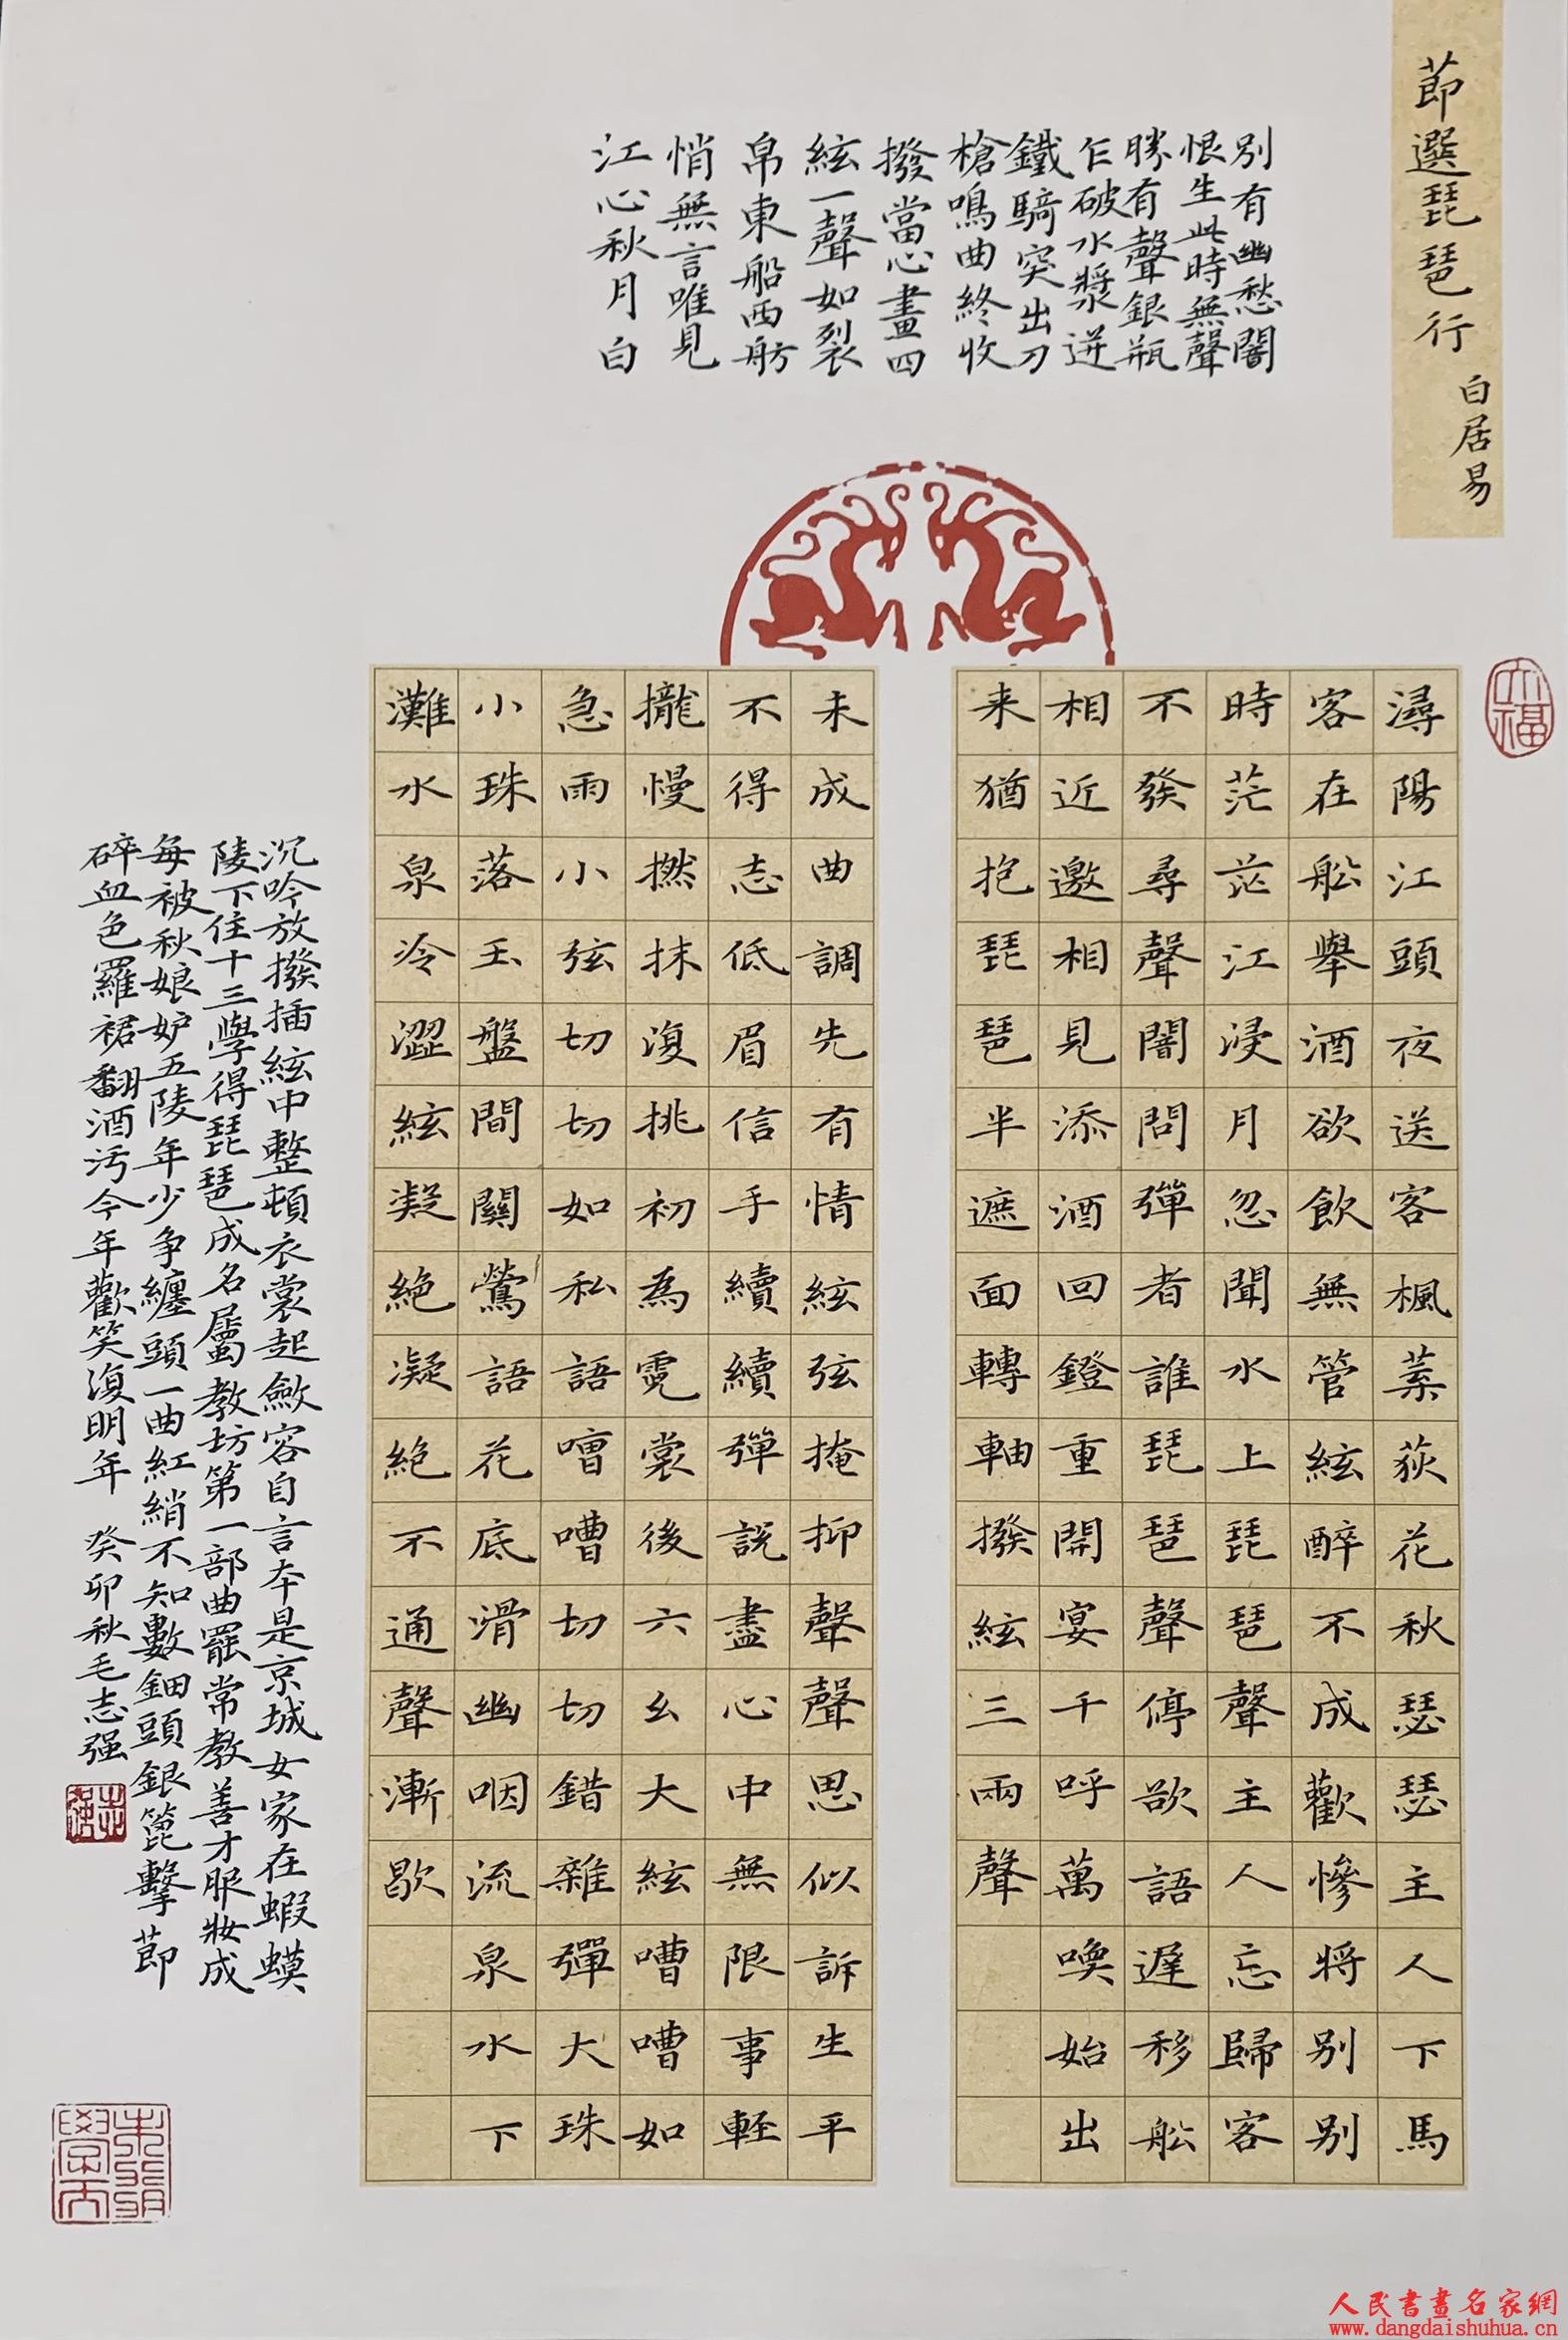 莭選琵琶行
白居易
潯陽江頭夜送客楓葉荻花秋瑟瑟主人下馬
客在船舉酒欲飲無管絃醉不成歡慘將别别
時茫茫江浸月忽聞水上琵琶聲主人忘歸客
不發尋聲闇問彈者誰琵琶聲停欲語遲移船
相近邀相見添酒回鐙重開宴千呼萬喚始出
来猶抱琵琶半遮面轉軸撥絃三兩聲
未成曲調先有情絃弦掩抑聲聲思似訴生平
不得志低眉信手續續彈説盡心中無限事輕
攏慢撚抹復挑初為霓裳後六幺大絃嘈嘈如
急雨小弦切切如私語嘈嘈切切錯雜彈大珠
小珠落玉盤間關鶯語花底滑幽咽流泉水下
灘水泉冷澀絃凝絶凝絶不通聲漸歇
别有幽愁闇
恨生此時無聲
勝有聲銀瓶
乍破水漿迸
鐵騎突出刀
槍鳴曲終收
撥當心畫四
絃一聲如裂
帛東船西舫
悄無言唯見
江心秋月白
沉吟放撥插絃中整頓衣裳起斂容自言本是京城女家在蝦蟆
陵下住十三學得琵琶成名屬教坊第一部曲罷常教善才服妝成
每被秋娘妒五陵年少争纏頭一曲紅綃不知數鈿頭銀篦擊莭
碎血色羅裙翻酒污今年歡笑復明年 癸卯秋毛志强
志强
人民書畫名家網
www.dangdaishuhua.cn